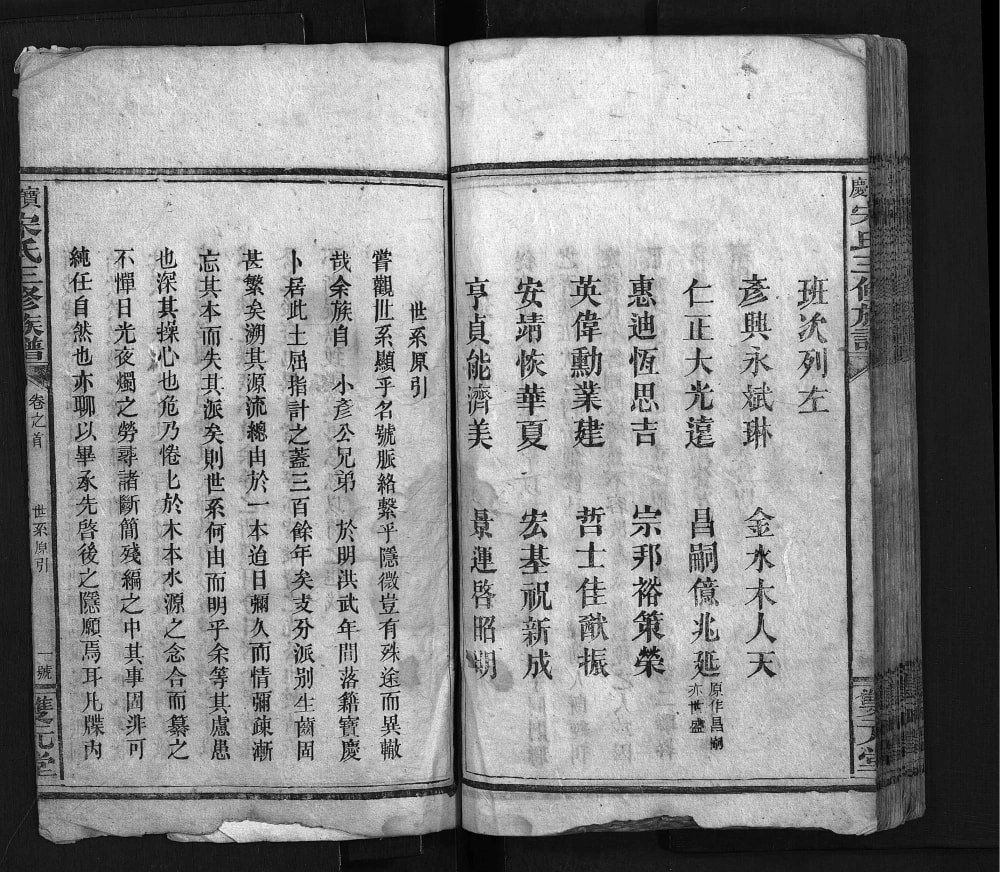 慶
宋氏三修族譜
雙元堂
班次列左
彥興永斌琳　金水木人天
仁正大光遠　昌嗣億兆延
原作昌嗣
亦世盛
惠迪恆思吉　宗邦裕策榮
英偉勳業建　哲士佳猷振
安靖恢華夏　宏基祝新成
亨貞能濟美　景運啓昭明
世系原引
嘗觀世系顯乎名號脈絡繫乎隱微豈有殊途而異轍
哉余族自　小彥公兄弟　於明洪武年間落籍寶慶
卜居此土屈指計之蓋三百餘年矣支分派别生齒固
甚繁矣溯其源流總由於一本迫日彌久而情彌疎漸
忘其本而失其派矣則世系何由而明乎余等其慮患
也深其操心也危乃惓匕於木本水源之念合而纂之
不憚日光夜燭之勞尋諸斷簡殘編之中其事固非可
純任自然也亦聊以畢承先啓後之隱願焉耳凡牒內
寶
宋氏三修族譜
卷之首
世系原引
一號
雙元堂